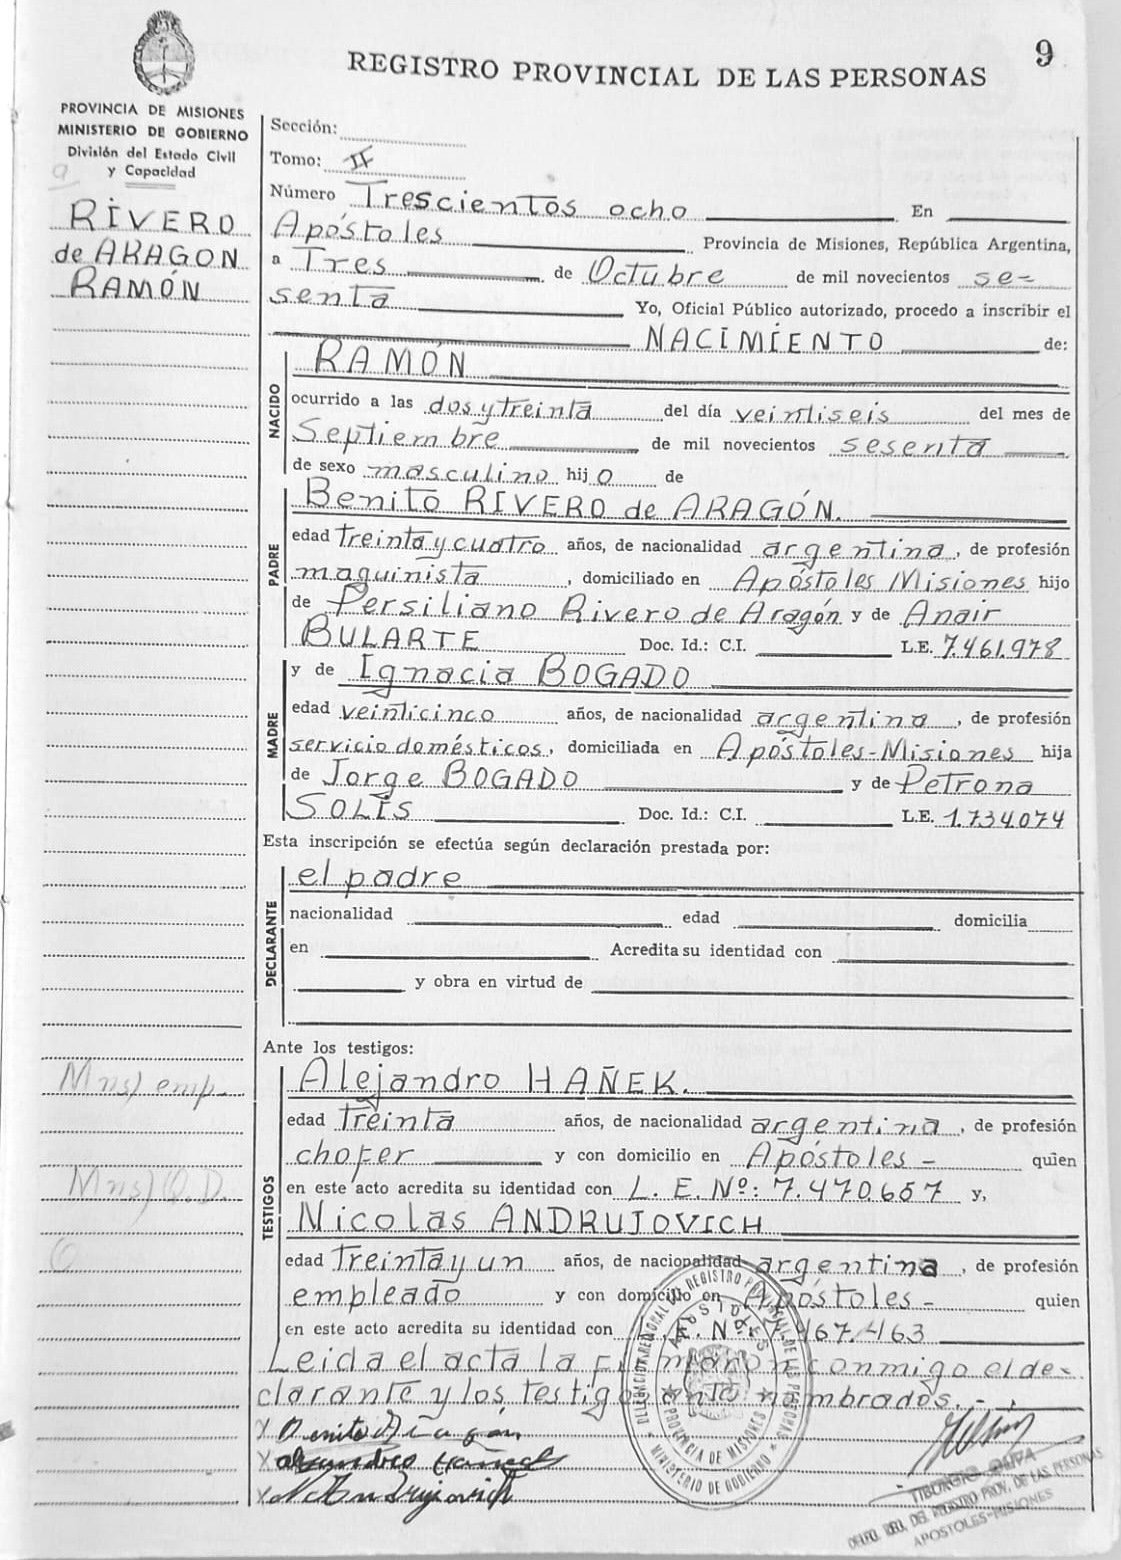 9
REGISTRO PROVINCIAL DE LAS PERSONAS
PROVINCIA DE MISIONES
MINISTERIO DE GOBIERNO
División del Estado Civil
y Capacidad
a
RIVERO
de ARAGON
RAMÓN
Mns) emp-
Mns) O.D.
Sección:
Tomo: II
Número Trescientos ocho En
Apóstoles Provincia de Misiones, República Argentina,
a Tres de Octubre de mil novecientos se-
senta Yo, Oficial Público autorizado, procedo a inscribir el
NACIMIENTO de:
NACIDO
RAMÓN
ocurrido a las dos y treinta del día veintiseis del mes de
Septiembre de mil novecientos sesenta
de sexo masculino hijo de
PADRE
Benito RIVERO de ARAGÓN.
edad treinta y cuatro años, de nacionalidad argentina, de profesión
maquinista, domiciliado en Apóstoles Misiones hijo
de Persiliano Rivero de Aragón y de Anair
BULARTE Doc. Id.: C.I. L.E. 7.461.978
MADRE
y de Ignacia BOGADO
edad veinticinco años, de nacionalidad argentina, de profesión
servicio domésticos, domiciliada en Apóstoles-Misiones hija
de Jorge BOGADO y de Petrona
SOLÍS Doc. Id.: C.I. L.E. 1.734.074
Esta inscripción se efectúa según declaración prestada por:
DECLARANTE
el padre
nacionalidad edad domicilia
en Acredita su identidad con
y obra en virtud de
Ante los testigos:
TESTIGOS
Alejandro HAÑEK.
edad treinta años, de nacionalidad argentina, de profesión
chofer y con domicilio en Apóstoles - quien
en este acto acredita su identidad con L. E. Nº: 7.470.657 y,
Nicolas ANDRUJOVICH
edad treinta y un años, de nacionalidad argentina, de profesión
empleado y con domicilio en Apóstoles - quien
en este acto acredita su identidad con L.E. Nº 467.463
Leida el acta la firmaron conmigo el de-
clarante y los testigos ante nombrados.-
x Benito R Aragón
x Alejandro Hañek
x N Andrujovich
DELEGACION REGIONAL DEL REGISTRO PROVINCIAL DE LAS PERSONAS
APOSTOLES
PROVINCIA DE MISIONES
MINISTERIO DE GOBIERNO
TIBURCIO OLIVA
DELEG. REG. DEL REGISTRO PROV. DE LAS PERSONAS
APOSTOLES-MISIONES